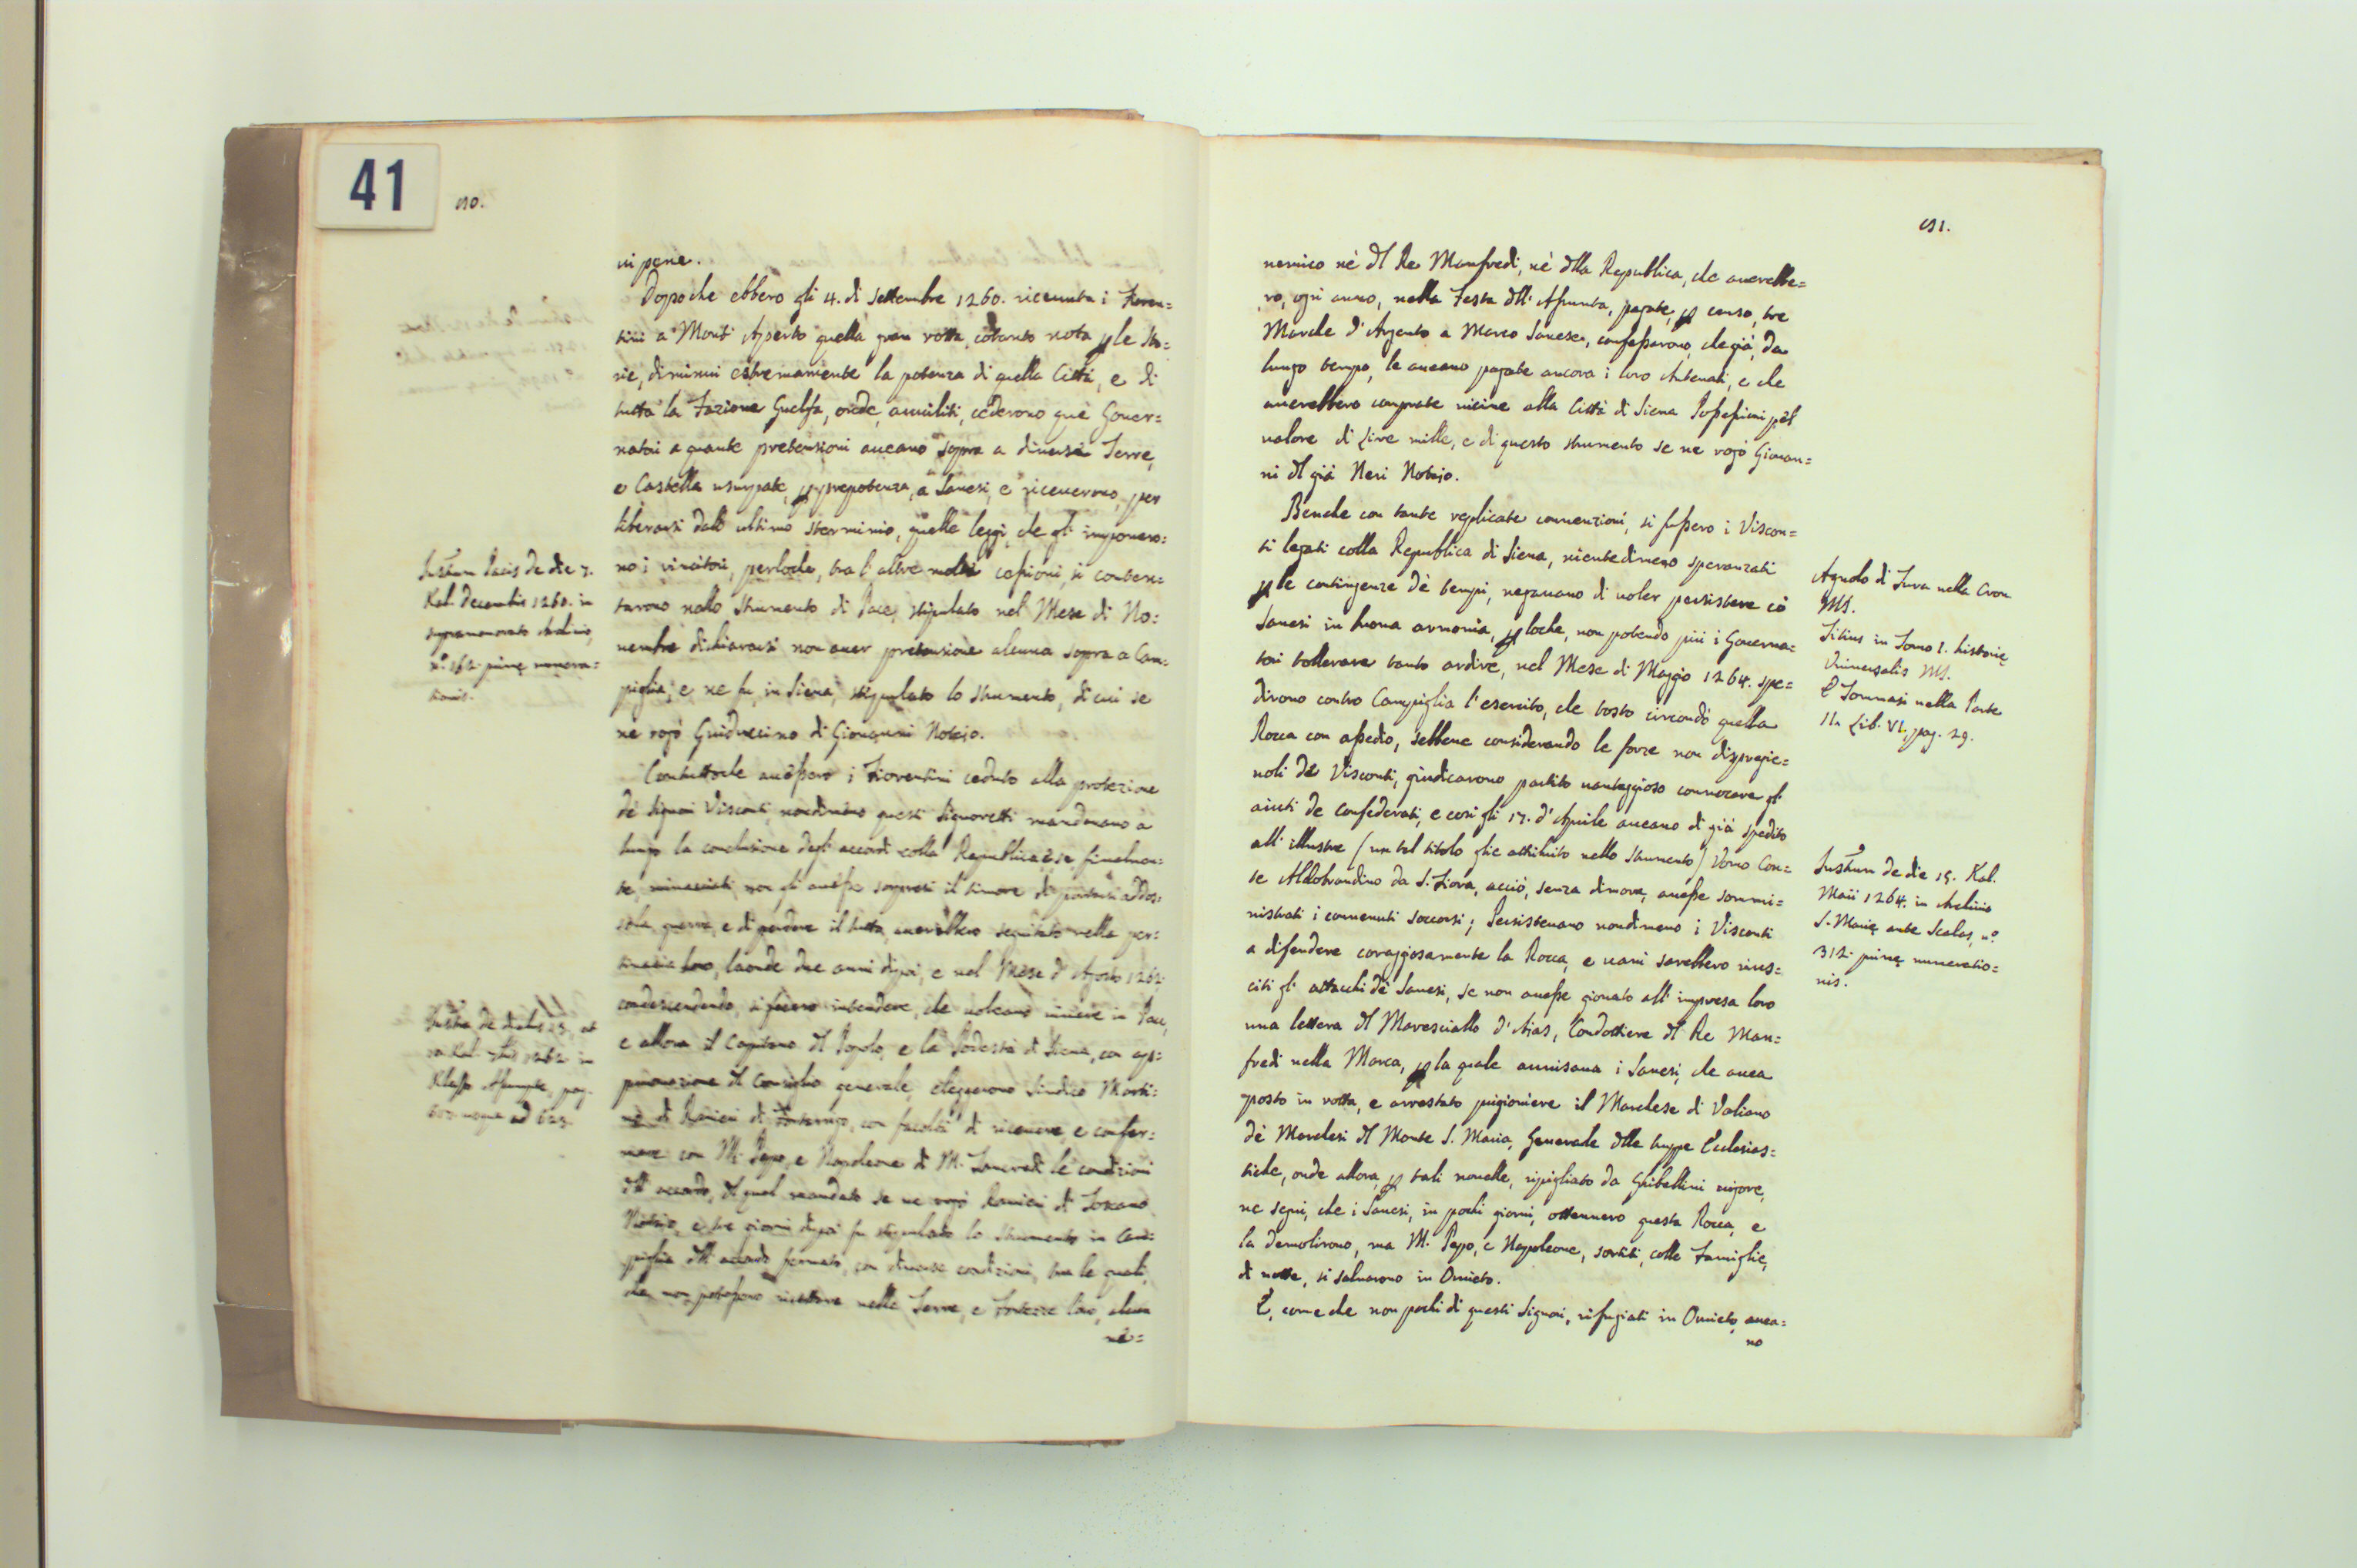 41
190.
ni pene.
Dopo che ebbero gli 4. di Settembre 1260. riceuuta i Fioren=
tini a Mont' Aperto quella gran rotta, cotanto nota p le Sto=
rie, diminuì estremamente la potenza di quella Città, e di
tutta la Fazione Guelfa, onde, auuiliti, cederono què Gouer=
natori a quante pretensioni aueano sopra a diuerse Terre,
e Castella usurpate, p prepotenza, a Sanesi, e riceuerono, per
liberarsi dallo ultimo sterminio, quelle leggi, che gl' imponeuo=
no i vincitori, perloche, tra l' altre molte cessioni, si conten=
tarono nello Strumento di Pace, stipulato nel Mese di No=
uembre dichiararsi non auer pretensione alcuna sopra a Cam=
piglia, e ne fu, in Siena, stipulato lo strumento, di cui se
ne rogò Guiduccino di Giouanni Notaio.
Instrum Pacis de die 7.
Kal. Decembris 1260. in
supramemorato Archiuio,
nº. 162. prime numera=
tionis.
Contuttoche auessero i Fiorentini ceduto alla protezione
dè Signori Visconti, nondimeno questi Signorotti mandauano à
lungo la conclusione degl' accordi colla Republica, e se finalmen=
te, minacciati, non gli auesse sorpresi il timore di portarsi addos=
so la guerra, e di perdere il tutto, auerebbero seguitato nella per=
tinacia loro, laonde due anni dipoi, e nel Mese d' Agosto 1262.
condescendendo, si fecero intendere, che uoleano uiuere in Pace,
e allora il Capitano dl Popolo, e la Podestà di Siena, con ap=
prouazione dl Consiglio generale, elessero Sindico Marti=
no di Ranieri di, con facoltà di riceuere e confer=
mare con M. Pepo, e Napoleone di M. Tancredi le condizioni
dll' accordo, dl qual mandato se ne rogò Ranieri di Toscano
Notaio, e tre giorni dipoi fu stipulato lo Strumento in Cam=
piglia dll' accordo fermato, con diuerse condizioni, tra le quali,
che non potessero ricettare nelle Terre, e Fortezze loro, alcun
ne=
191.
nemico nè dl Re Manfredi, nè dlla Republica, che auerebbe=
ro, ogni anno, nella Festa dll' Assunta, pagate, p censo, tre
Marche d' Argento a Marco Sanese, confessarono, che già, da
lungo tempo, le aueano pagate ancora i loro Antenati, e che
auerebbero comprate uicine alla Città di Siena Possessioni pel
ualore di Lire mille, e di questo strumento se ne rogò Giouan=
ni dl già Neri Notaio.
Benche con tante replicate conuenzioni, si fussero i Viscon=
ti legati colla Republica di Siena, nientedimeno speranzati
p le contingenze dè tempi, negauano di uoler persistere cò
Sanesi in buona armonia, p loche, non potendo più i Gouerna=
tori tollerare tanto ardire, nel Mese di Maggio 1264. spe=
dirono contro Campiglia l' esercito, che tosto circondò quella
Rocca con assedio, sebbene considerando le forze non dispregie=
uoli dè Visconti, giudicarono partito uantaggioso conuocare gl'
aiuti de Confederati, e così gli 17. d' Aprile aueano di già spedito
all' illustre (un tal titolo glie attribuito nello Strumento) Vomo Con=
te Aldobrandino da S. Fiora, acciò, senza dimora, auesse sommi=
nistrati i conuenuti soccorsi; Persisteuano nondimeno i Visconti
a difendere coraggiosamente la Rocca, e uani sarebbero rius=
citi gl' attacchi dè Sanesi, se non auesse giouato all' impresa loro
una lettera dl Maresciallo d' Aias, Condottiere dl Re Man=
fredi nella Marca, p la quale auuisaua i Sanesi, che auea
posto in rotta, e arrestato prigioniere il Marchese di Valiano
dè Marchesi dl Monte S. Maria, Generale dlle truppe Ecclesias=
tiche, onde allora, p tali nouelle, ripigliato da Ghibellini uigore,
ne seguì, che i Sanesi, in pochi giorni, ottennero questa Rocca, e
la demolirono, ma M. Pepo, e Napoleone, sortiti, colle Famiglie,
di notte, si saluarono in Oruieto.
E, come che non pochi di questi Signori, rifugiati in Oruieto, auea=
no
Agnolo di Tura nella Cron.
MS.
Titius in Tomo I. historię
Vniuersalis MS.
E Tommasi nella Parte
IIa Lib. VI. pag. 29.
Instrum de die 15. Kal.
Maii 1264. in Archiuio
S. Marię ante Scalas, nº.
312. primę numeratio=
nis.